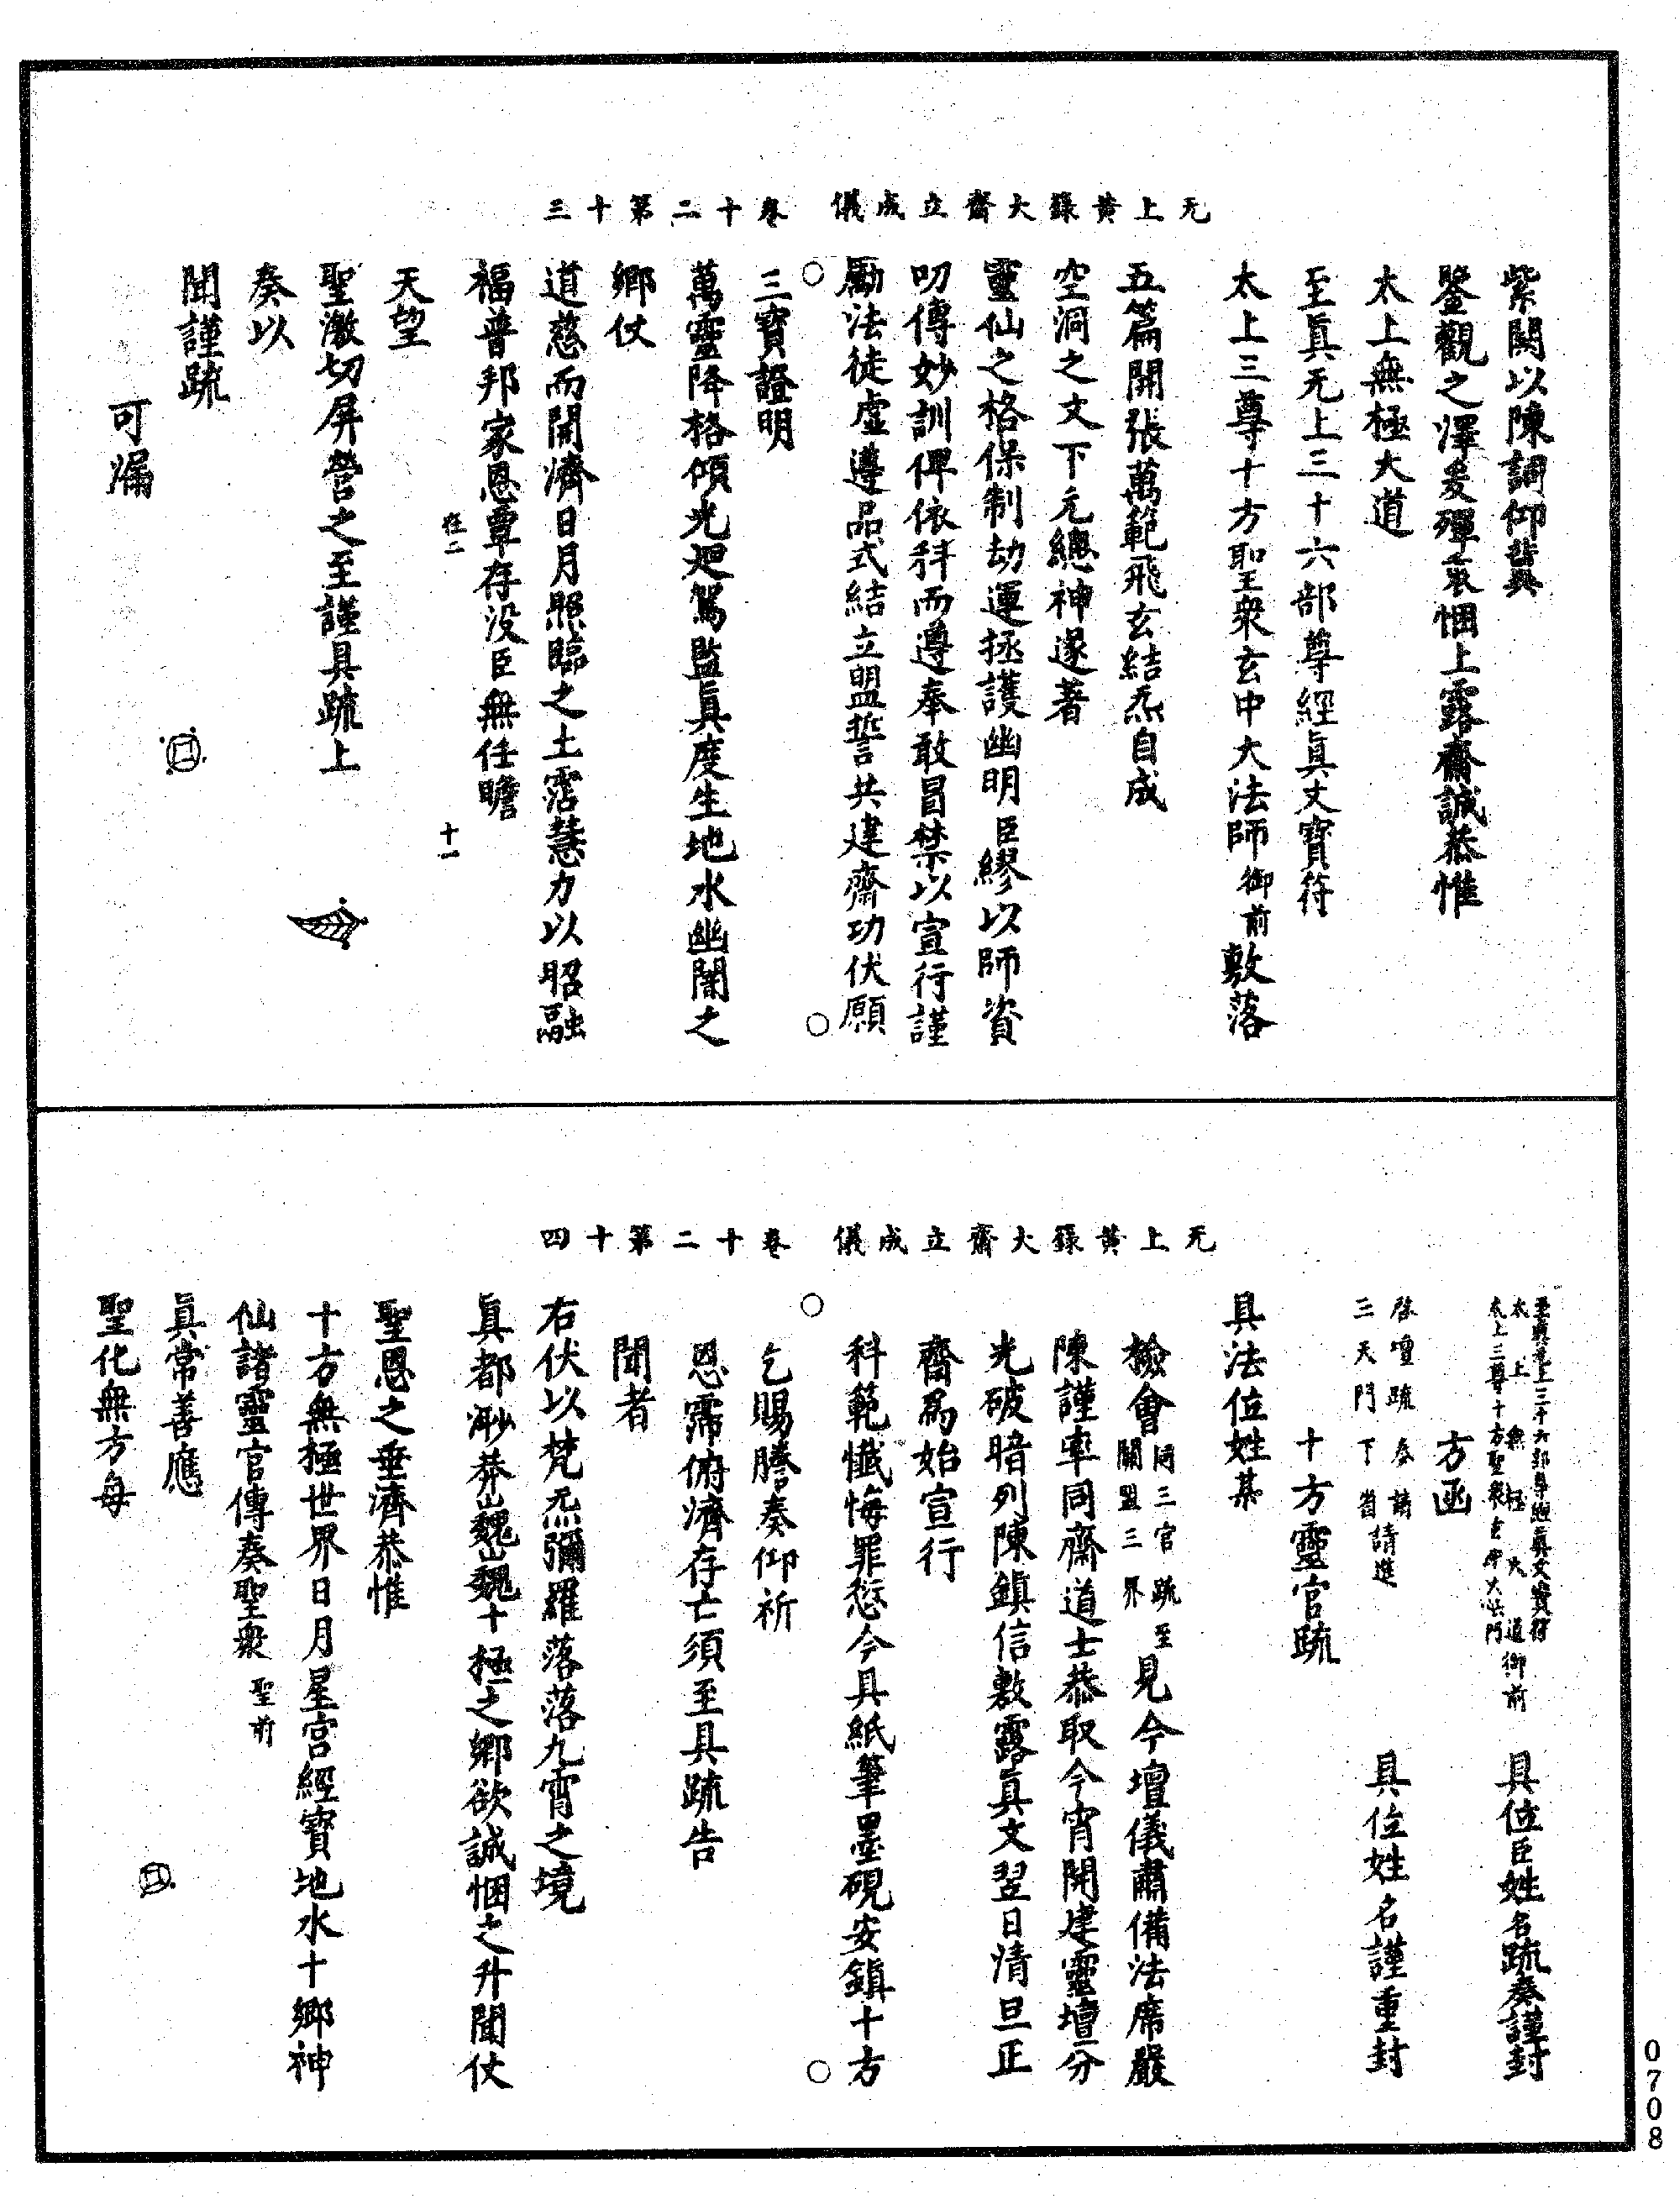 无上黃籙大齋立成儀　卷二十第十三
紫闕以陳詞仰兾
鑒觀之澤爰殫衷悃上露齋誠恭惟
太上無極大道
至眞无上三十六部尊經眞文寶符
太上三尊十方聖衆玄中大法師御前敷落
五篇開張萬範飛玄結炁自成
空洞之文下元總神遂著
靈仙之格保制劫運拯護幽明臣繆以師資
叨傳妙訓俾依科而遵奉敢冒禁以宣行謹
勵法徒虛遵品式結立盟誓共建齋功伏願
三寶證明
萬靈降格傾光廻駕監眞度生地水幽闇之
鄉仗
道慈而開濟日月照臨之土霑慧力以昭融
福普邦家恩覃存没臣無任瞻
在二　十一
天望
聖激切屏營之至謹具疏上
奏以
聞謹疏
可漏
无上黃籙大齋立成儀　卷二十第十四
至眞无上三十六部尊經眞文寶符
太上無極大道御前　具位臣姓名疏奏謹封
太上三尊十方聖衆玄中大法門
方函
啓壇疏奏請
三天門下省請進　具位姓名謹重封
十方靈官疏
具法位姓某
檢會同三官疏至關盟三界見今壇儀肅備法席嚴
陳謹率同齋道士恭取今宵開建靈壇分
光破暗列陳鎭信敷露眞文翌日清旦正
齋爲始宣行
科範懺悔罪愆今具紙筆墨硯安鎭十方
乞賜謄奏仰祈
恩霈俯濟存亡須至具疏告
聞者
右伏以梵炁彌羅落落九霄之境
眞都渺莽巍巍十極之鄉欲誠悃之升聞仗
聖恩之垂濟恭惟
十方無極世界日月星宮經寶地水十鄉神
仙諸靈官傳奏聖衆　聖前
眞常善應
聖化無方每
0708